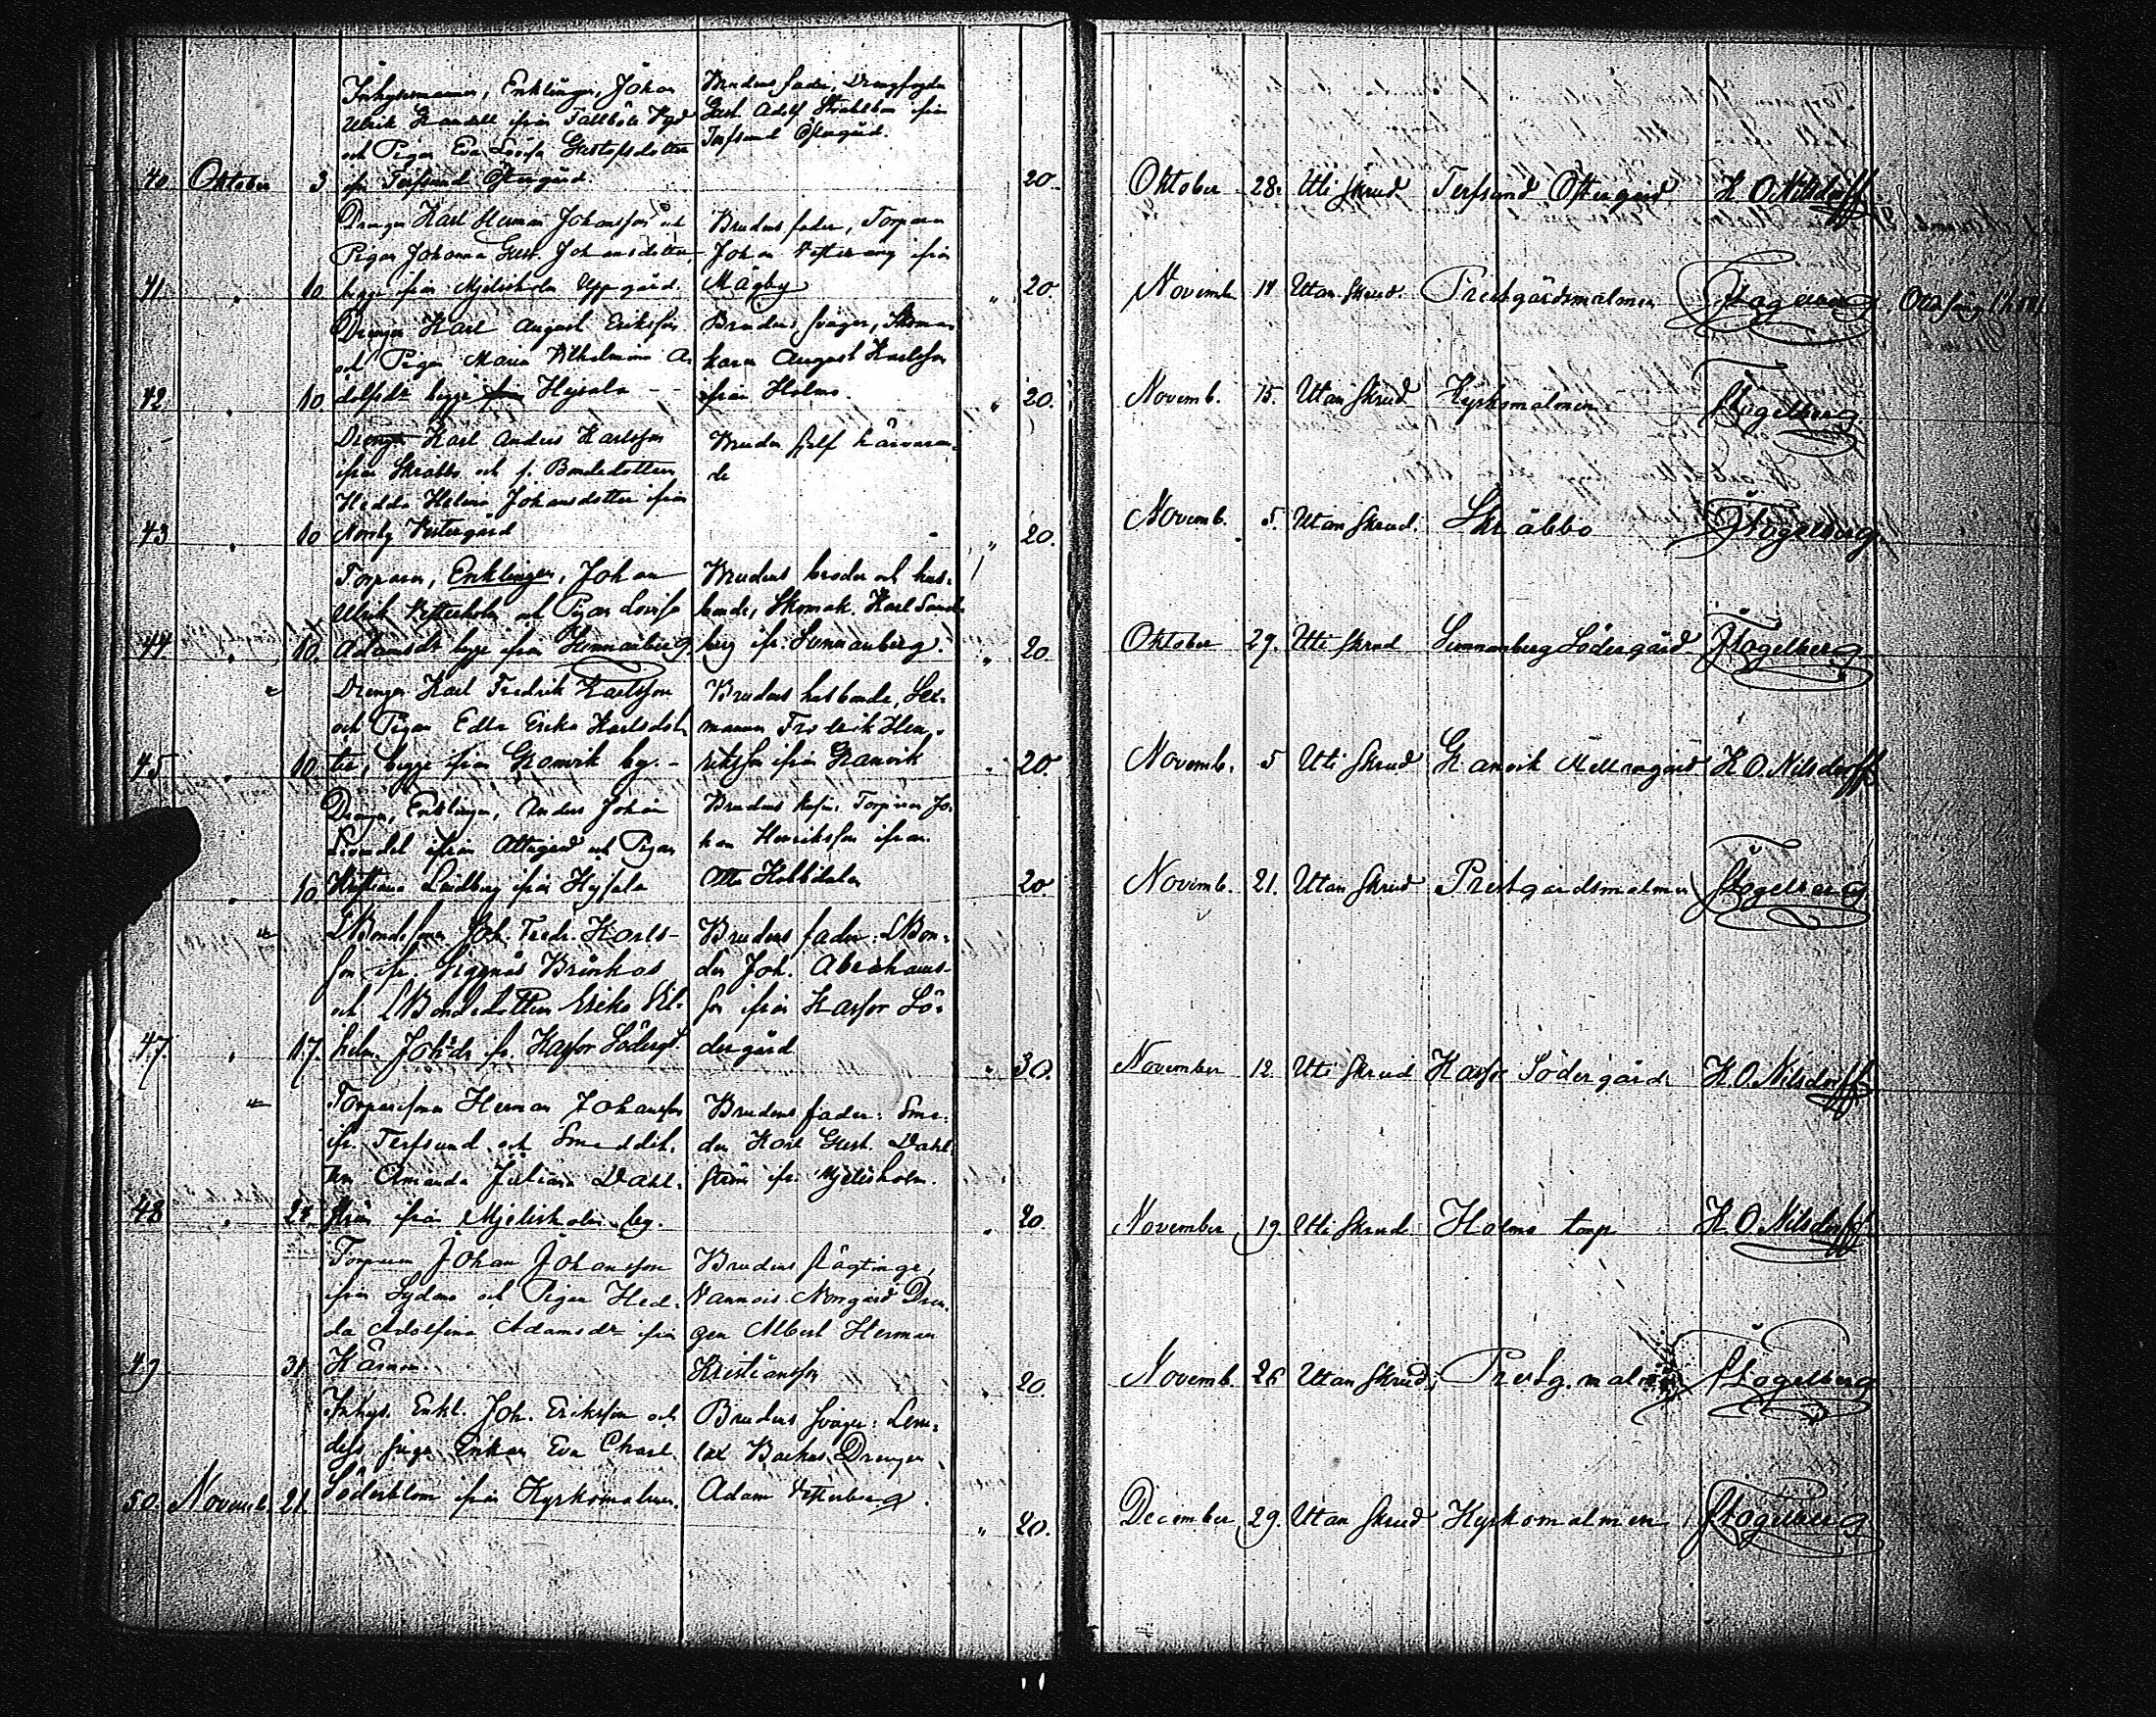 Inhysemannen, Enklingen, Johan
Ulrik Grandell ifrån Tallböle Nygd
och Pigan Eva Lovisa Gustafsdotter
ifr. Terfsund Östergård.
Brudens fader, Drengfogden
Gust. Adolf Ståhlbom ifrån
Terfsund Östergård.
40. Oktober 3 20.
Oktober 28. Uti skrud Terfsund Östergård H. O. Nilsdorff
Drengen Karl Herman Johansson och
Pigan Johanna Gust. Johansdotter,
begge från Mjelisholm Uppgård.
Brudens fader, Torparen
Johan ifrån
Mågby
41. " 10. " 20.
Novemb. Utan skrud. Prestgårdsmalmen Fogelberg.
Drengen Karl August Eriksson
och Pigan Maria Vilhelmina A-
dolfsdr begge från Hysala - -
Brudens svåger, Skoma-
karen August Karlsson
ifrån Holma.
42 " 10. " 20.
Novemb. 15. Utan skrud Kyrkomalmen Fogelberg
Drengen Karl Anders Karlsson
ifrån Skräbbo och f. Bondedottern
Hedda Helena Johansdotter ifrån
Norrby Vestergård
Bruden sjelf härvaran-
de
43 " 10 " 20.
Novemb. 5. Utan skrud. Skräbbo Fogelberg.
Torparen, Enklingen, Johan
Ulrik Vesterholm och Pigan Lovisa
Adamsdr begge från Sunnanberg.
Brudens broder och hus-
bonde, Skomak. Karl Sand-
berg ifr. Sunnanberg.
44. " 10. " 20
Oktober 29. Uti skrud Sunnanberg Södergård Fogelberg
Drengen Karl Fredrik Karlsson
och Pigan Edla Erika Karlsdot-
ter, begge ifrån Granvik by. -
Brudens husbonde, Sex-
mannen Fredrik Hen-
riksson ifrån Granvik
45 " 10. " 20.
Novemb. 5 Uti skrud Granvik Mellangård H. O. Nilsdorff
Drengen, Enklingen, Anders Johan
ifrån Attugård och Pigan
Kristiana Lindberg ifrån Hysala
Brudens Torparen Jo-
han Henriksson ifrån
Attu Kobbdalen
" 10 20.
Novemb. 21. Utan skrud Prestgårdsmalmen Fogelberg
Bondesonen Joh. Fredr. Karls-
son ifr. Siggnäs Brinkas
och Bondedottern Erika Vil-
helm. Joh:dr fr. Karfor Södergd.
Brudens fader: Bon-
den Joh. Abrahams-
son ifrån Karfor Sö-
dergård
47. " 17. " 30.
November 12. Uti skrud Karfor Södergård. H. O. Nilsdorff
Torparsonen Herman Johansson
ifr. Terfsund och Smeddot-
tern Amanda Juliana Dahl-
ström från Mjelisholm by.
Brudens fader: Sme-
den Karl Gust. Dahl-
ström ifr. Mjelisholm.
48 " 24. " 20.
November 19. Uti skrud Holma torp H. O. Nilsdorff
Torparen Johan Johansson
från Sydmo och Pigan Hed-
da Adolfina Adamsdr från
Kärmo.
Brudens slägtinge,
Vannois Norrgård Dren-
gen Albert Herman
Kristiansson
49 31 " 20.
Novemb. 26 Utan skrud; Prestg. malmen Fogelberg
Inhys. Enkl. Joh. Eriksson och
dess Enkan Eva Charl.
Söderblom från Kyrkomalmen.
Brudens svåger: Lem-
lax Backas Drengen
Adam Vesterberg.
50. Novemb. 21. " 20.
December 29. Utan skrud Kyrkomalmen Fogelberg